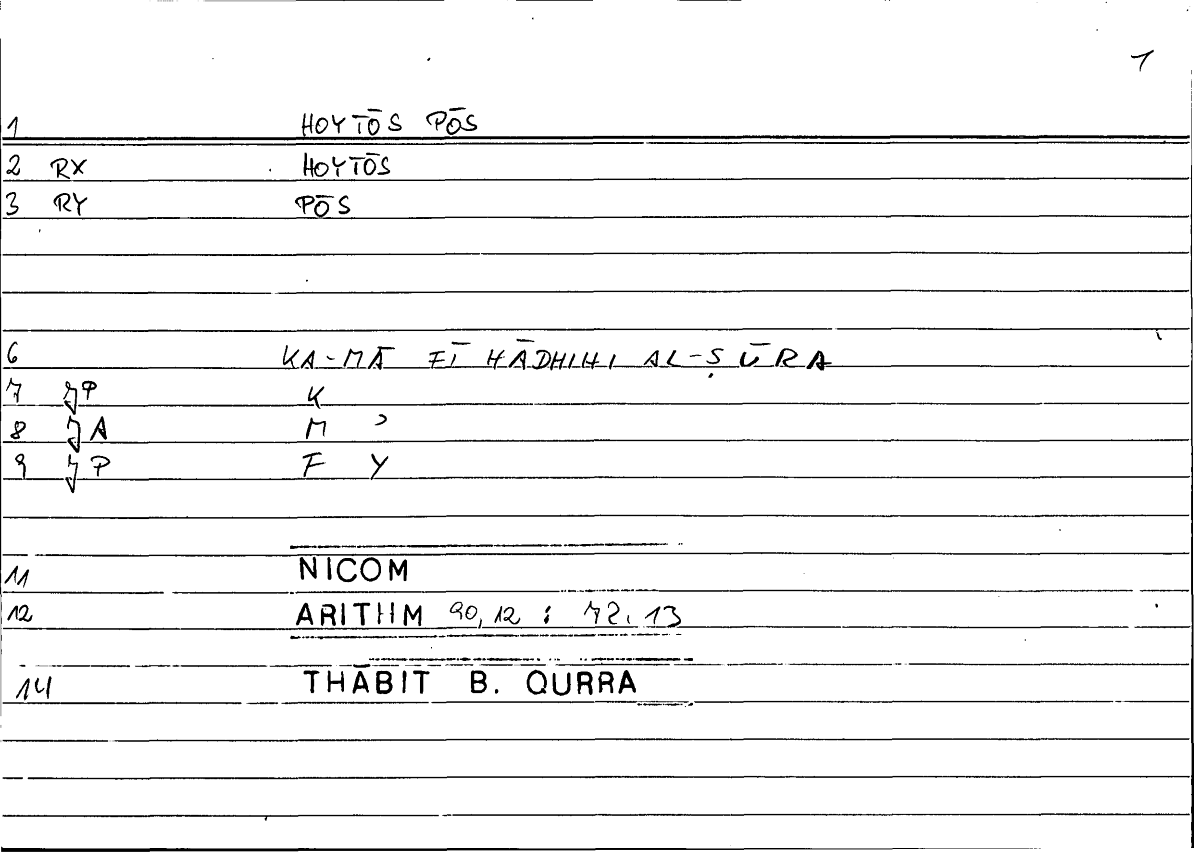 1
1 HOYTŌS PŌS
2 RX HOYTŌS
3 RY PŌS
6 KA-MĀ FĪ HĀDHIHI AL-ṢŪRA
7 JP K
8 JA M ʾ
9 JP F Y
11 NICOM
12 ARITHM 90,12 : 72.13
14 THĀBIT B. QURRA